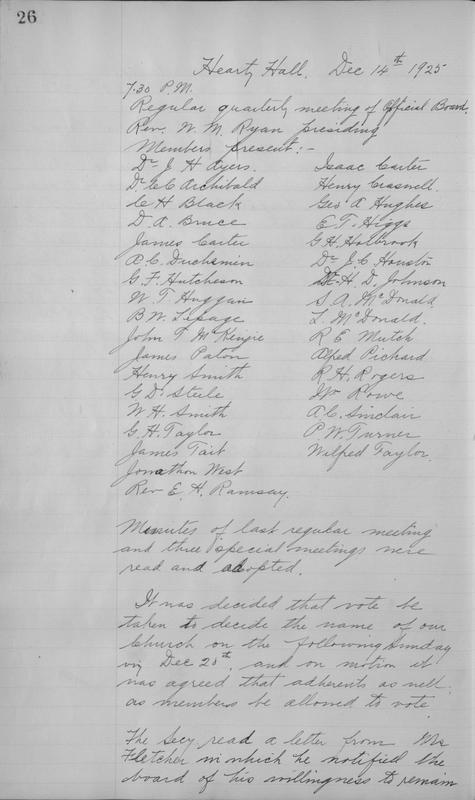 26
Heartz Hall. Dec 14th 1925
7.30 P.M.
Regular quarterly meeting of Official Board.
Rev. W. M. Ryan presiding
Members present:-
Dr J H Ayers. Isaac Carter
Dr C C Archibald Henry Crasnell.
C H Black Geo A Hughes
D. A. Bruce E T Higgs
James Carter G H Holbrook
A C. Duchemin Dr J. C. Houston
G. F. Hutcheson Dr H. D. Johnson
W T Huggan S A. McDonald
B W. Lepage L McDonald.
John T McKenzie R E Mutch
James Paton Alfred Pichard
Henry Smith R H. Rogers
G D. Steele Wm Rowe
W H. Smith A. C. Sinclair
G. H. Taylor P. W. Turner
James Tait Wilfred Taylor.
Jonathon West
Rev E. H. Ramsay.
Minutes of last regular meeting
and three special meetings were
read and adopted.
It was decided that vote be
taken to decide the name of our
Church on the following Sunday
viz Dec 20th, and on motion it
was agreed that adherents as well
as members be allowed to vote
The Secy read a letter from Mr
Fletcher in which he notified the
board of his willingness to remain